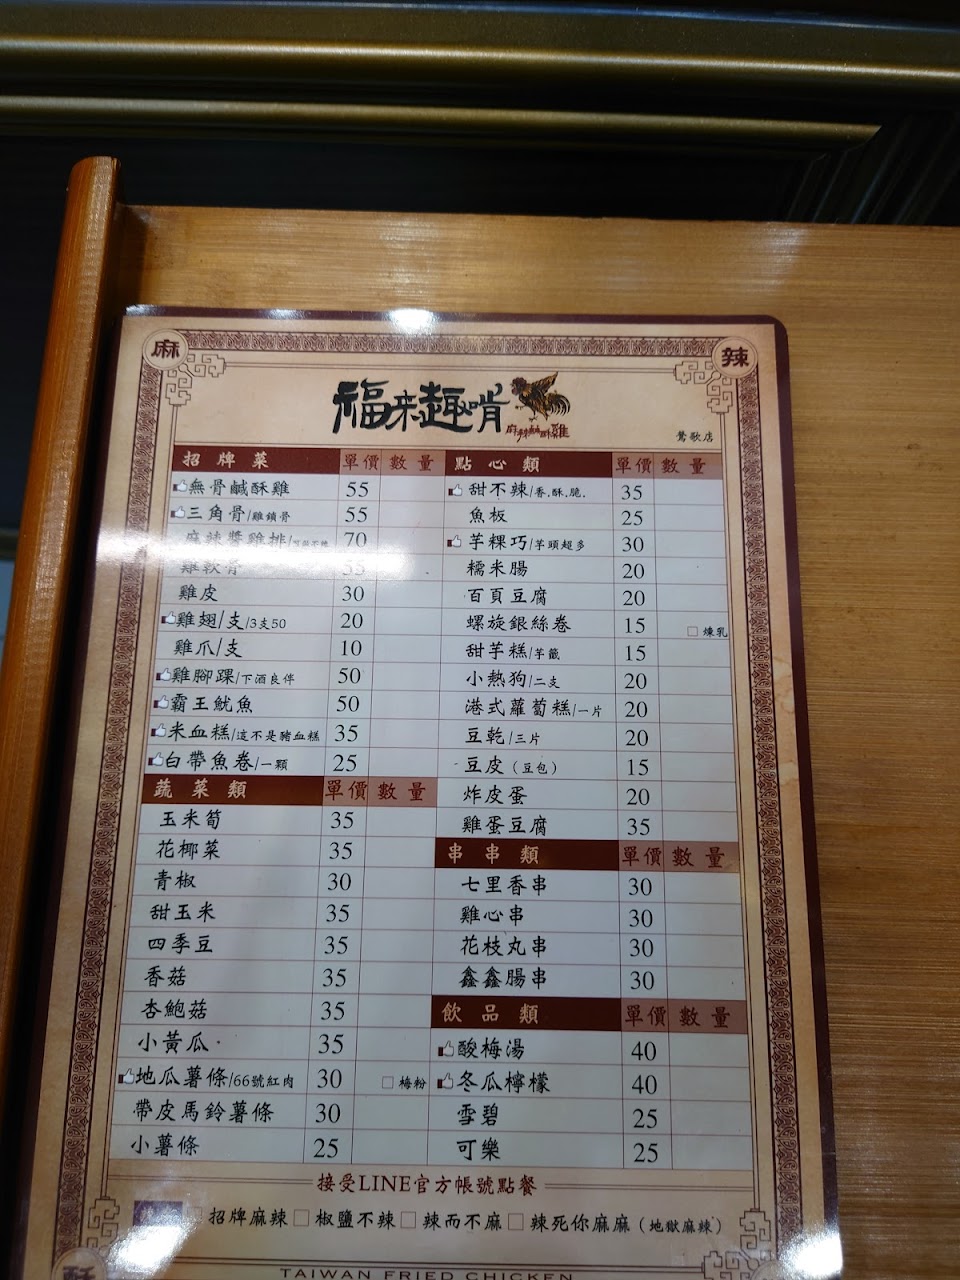 麻
辣
福來趣啃
麻辣鹹酥雞
鶯歌店
招牌菜 單價 數量
無骨鹹酥雞 55
三角骨/雞鎖骨 55
麻辣醬雞排 70
雞軟骨 55
雞皮 30
雞翅/支/3支50 20
雞爪/支 10
雞腳踝/下酒良伴 50
霸王魷魚 50
米血糕/這不是豬血糕 35
白帶魚卷/一顆 25
蔬菜類 單價 數量
玉米筍 35
花椰菜 35
青椒 30
甜玉米 35
四季豆 35
香菇 35
杏鮑菇 35
小黃瓜 35
地瓜薯條/66號紅肉 30 □ 梅粉
帶皮馬鈴薯條 30
小薯條 25
點心類 單價 數量
甜不辣/香.酥.脆. 35
魚板 25
芋粿巧/芋頭超多 30
糯米腸 20
百頁豆腐 20
螺旋銀絲卷 15 □ 煉乳
甜芋糕/芋籤 15
小熱狗/二支 20
港式蘿蔔糕/一片 20
豆乾/三片 20
豆皮(豆包) 15
炸皮蛋 20
雞蛋豆腐 35
串串類 單價 數量
七里香串 30
雞心串 30
花枝丸串 30
鑫鑫腸串 30
飲品類 單價 數量
酸梅湯 40
冬瓜檸檬 40
雪碧 25
可樂 25
接受LINE官方帳號點餐
□ 招牌麻辣 □ 椒鹽不辣 □ 辣而不麻 □ 辣死你麻麻(地獄麻辣)
酥
TAIWAN FRIED CHICKEN